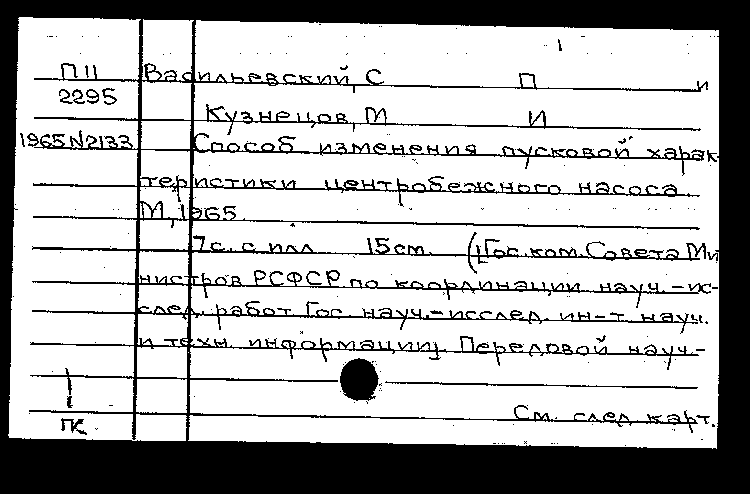 1
П11 Васильевский, С П и
2295 Кузнецов, М И
1965N2133 Способ изменения пусковой харак-
теристики центробежного насоса.
М, 1965
7с. с илл 15см. ([Гос. ком. Совета Ми
нистров РСФСР по координации науч.-ис-
след. работ Гос. науч.-исслед. ин-т. науч.
и техн. информации]. Передовой науч.-
См. след карт.
ПК